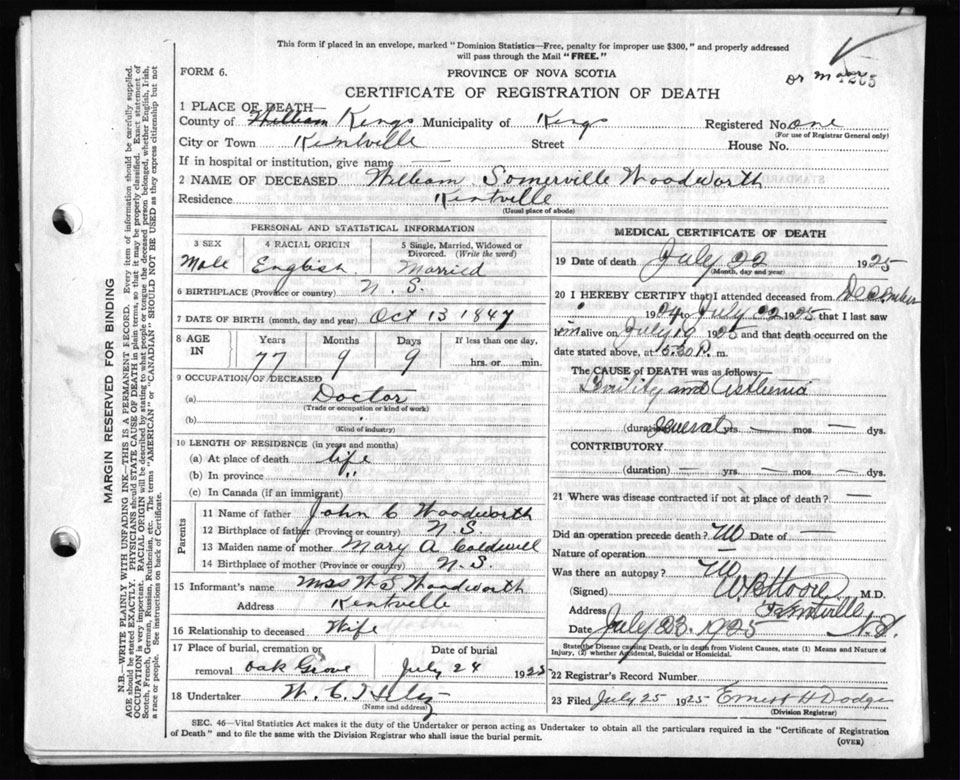 This form if placed in an envelope, marked "Dominion Statistics—Free, penalty for improper use $300," and properly addressed
will pass through the Mail "FREE."
K
or m
FORM 6.
PROVINCE OF NOVA SCOTIA
CERTIFICATE OF REGISTRATION OF DEATH
1 PLACE OF DEATH—
County of William Kings Municipality of Kings Registered No. one
(For use of Registrar General only)
City or Town Kentville Street House No.
If in hospital or institution, give name —
2 NAME OF DECEASED William Somerville Woodworth
Residence Kentville
(Usual place of abode)
PERSONAL AND STATISTICAL INFORMATION
3 SEX 4 RACIAL ORIGIN 5 Single, Married, Widowed or
Divorced. (Write the word)
Male English Married
6 BIRTHPLACE (Province or country) N. S.
7 DATE OF BIRTH (month, day and year) Oct 13 1847
8 AGE IN Years Months Days If less than one day,
77 9 9 hrs. or min.
9 OCCUPATION OF DECEASED
(a) Doctor
(Trade or occupation or kind of work)
(b)
(Kind of industry)
10 LENGTH OF RESIDENCE (in years and months)
(a) At place of death life
(b) In province "
(c) In Canada (if an immigrant)
Parents
11 Name of father John C Woodworth
12 Birthplace of father (Province or country) N. S
13 Maiden name of mother Mary A Coldwell
14 Birthplace of mother (Province or country) N. S.
15 Informant's name Mrs W S Woodworth
Address Kentville
16 Relationship to deceased Wife
17 Place of burial, cremation or Date of burial
removal Oak Grove July 24 1925
18 Undertaker W. C.
(Name and address)
MEDICAL CERTIFICATE OF DEATH
19 Date of death July 22 1925
(Month, day and year)
20 I HEREBY CERTIFY that I attended deceased from December
1924 to July 22 1925 that I last saw
him alive on July 19 1925 and that death occurred on the
date stated above, at 5.30 P. m.
The CAUSE of DEATH was as follows:—
Senility and Asthenia
(duration) several yrs. — mos. — dys.
CONTRIBUTORY
(duration) — yrs. — mos. — dys.
21 Where was disease contracted if not at place of death? —
Did an operation precede death? No Date of —
Nature of operation —
Was there an autopsy? No
(Signed) W B Moore M.D.
Address Kentville N.S.
Date July 23. 1925
State the Disease causing Death, or in death from Violent Causes, state (1) Means and Nature of
Injury, (2) whether Accidental, Suicidal or Homicidal.
22 Registrar's Record Number
23 Filed July 25 1925 Ernest H Dodge
(Division Registrar)
SEC. 46—Vital Statistics Act makes it the duty of the Undertaker or person acting as Undertaker to obtain all the particulars required in the "Certificate of Registration
of Death" and to file the same with the Division Registrar who shall issue the burial permit.
(OVER)
MARGIN RESERVED FOR BINDING
N.B.—WRITE PLAINLY WITH UNFADING INK—THIS IS A PERMANENT RECORD. Every item of information should be carefully supplied.
AGE should be stated EXACTLY. PHYSICIANS should STATE CAUSE OF DEATH in plain terms, so that it may be properly classified. Exact statement of
OCCUPATION is very important. RACIAL ORIGIN will be described by stating to what people or tongue the deceased person belonged, whether English, Irish,
Scotch, French, German, Russian, Ruthenian, etc. The terms "AMERICAN" or "CANADIAN" SHOULD NOT BE USED as they express citizenship but not
a race or people. See instructions on back of Certificate.